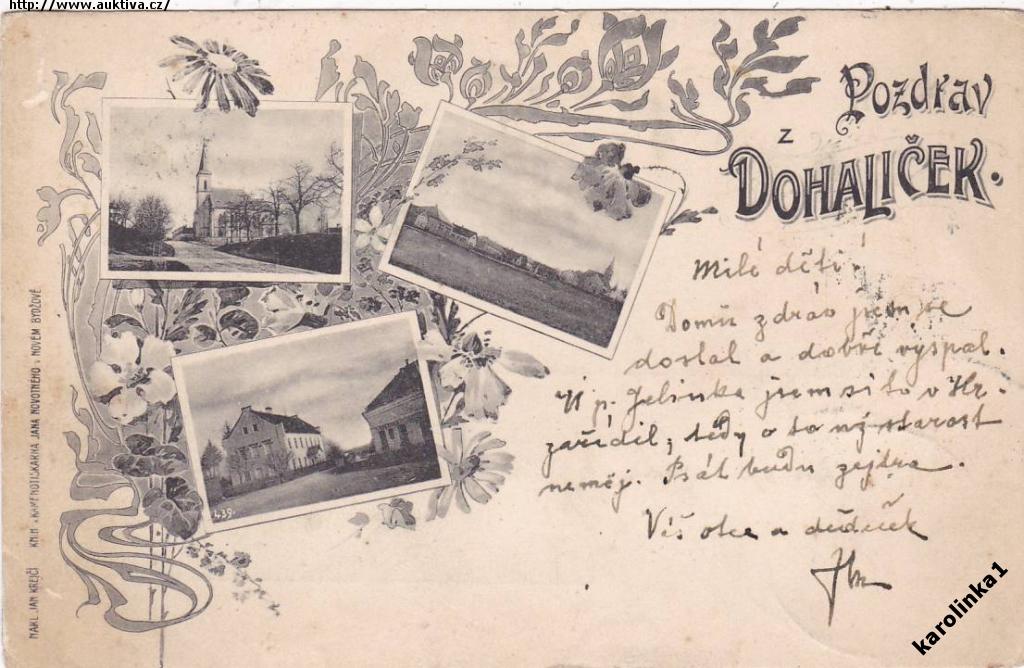 http://www.auktiva.cz/
Pozdrav
z
Dohaliček.
Milé děti!
Domů zdráv jsem se
dostal a dobře vyspal.
U p. Jelínka jsem si to v Hr.
zařídil, tedy o to
starost
neměj. Psát budu zejtra.
Váš otec a dědeček
439.
NAKL. JAN KREJČÍ KNIH- A KAMENOTISKÁRNA JANA NOVOTNÉHO V NOVÉM BYDŽOVĚ
karolinka1